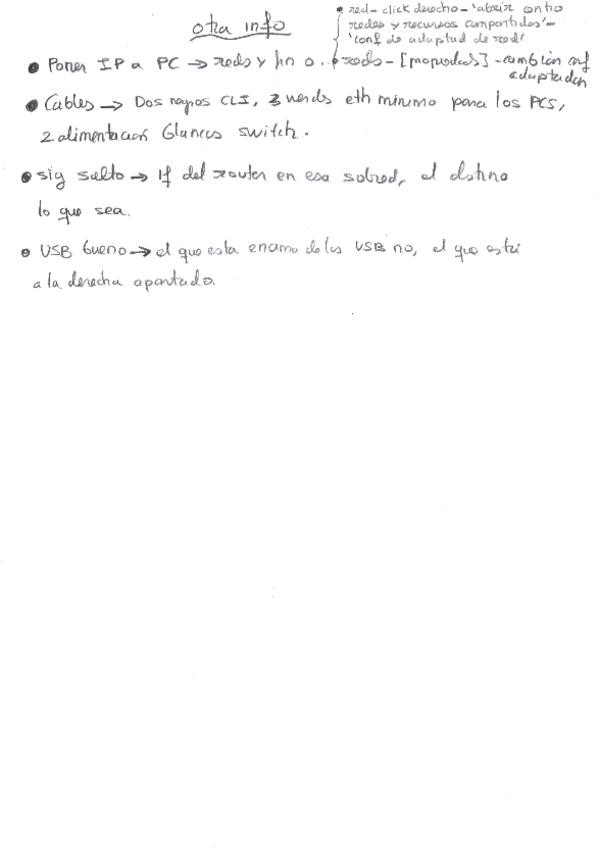 otra info
• red - click derecho - 'abrir centro
redes y recursos compartidos' -
'conf de adaptad de red'
• Poner IP a PC → redes y in o.. • redes - [propiedades] - cambiar conf
adaptador
• Cables → Dos negros CLI, 3 verdes eth minimo para los PCS,
2 alimentacion blancos switch.
• sig salto → If del router en esa subred, el destino
lo que sea.
• USB bueno → el que esta encima de los USB no, el que está
a la derecha apartado.